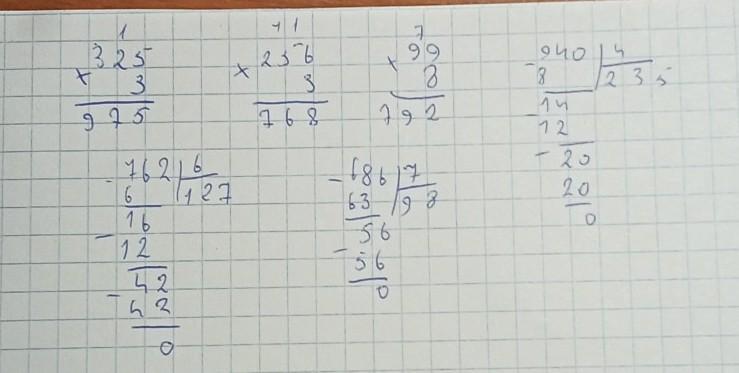 1
325
× 3
975
11
256
× 3
768
7
99
× 8
792
- 940 | 4
8 235
14
- 12
- 20
20
0
- 762 | 6
6 127
16
- 12
42
- 42
0
- 686 | 7
63 98
56
- 56
0